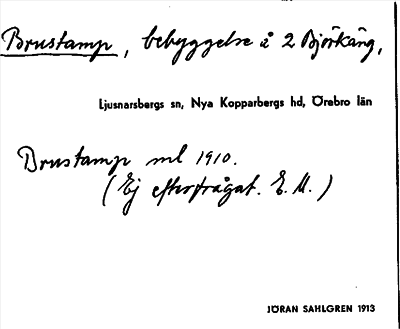 Brustamp, bebyggelse å 2 Björkäng,
Ljusnarsbergs sn, Nya Kopparbergs hd, Örebro län
Brustamp ml 1910.
(Ej efterfrågat. E. M.)
JÖRAN SAHLGREN 1913